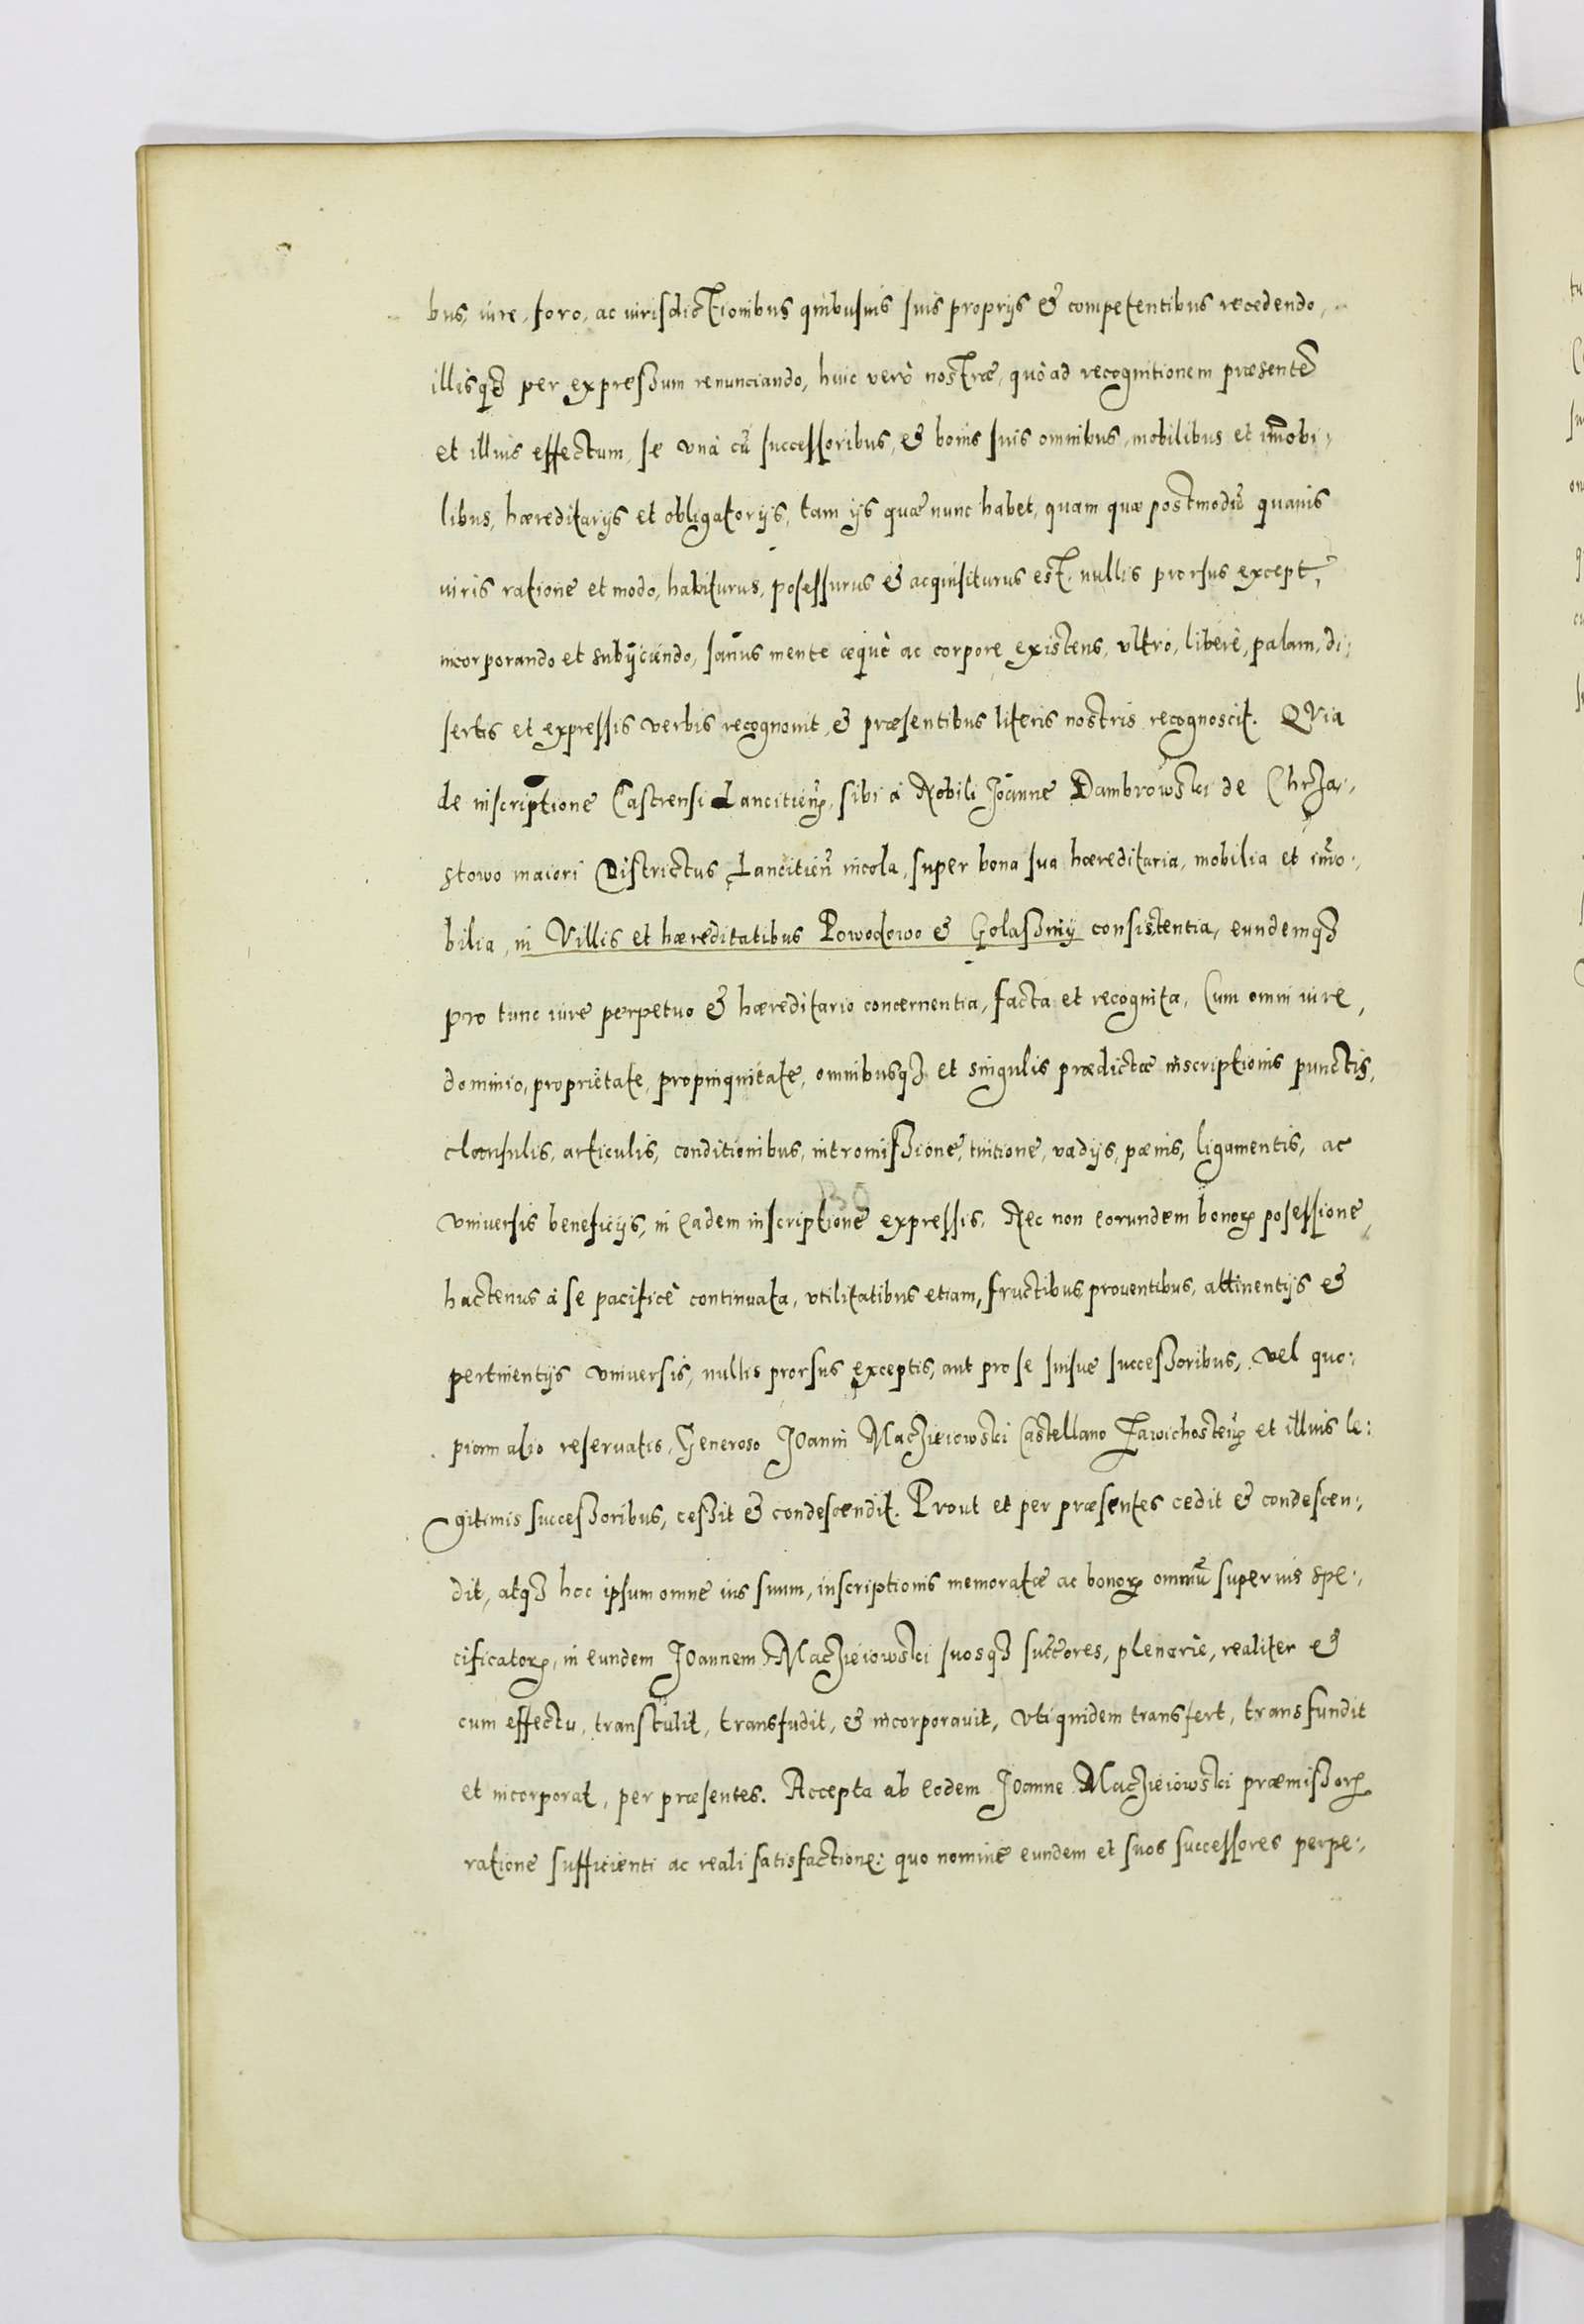 bus, iure, foro, ac iurisdictionibus quibusuis suis proprijs & competentibus recedendo,
illisqȝ per expressum renunciando, huic verò nostræ, quò ad recognitionem præsentẽ
et illius effectum, se vnà cũ successoribus, & bonis suis omnibus, mobilibus et im̃obi:
libus, hæreditarijs et obligatorijs, tam ijs quæ nunc habet, quam quæ postmodũ quauis
iuris ratione et modo, habiturus, possessurus & acquisiturus est, nullis prorsus except,
incorporando et subijciendo, sanus mente æquè ac corpore existens, vltrò, liberè, palam, di:
sertis et expressis verbis recognouit, & præsentibus literis nostris recognoscit. QVia
de inscriptione Castrensi Lancitieñ, sibi à Nobili Joanne Dambrowski de Chrza:
stowo maiori Districtus Lancitieñ incola, super bona sua hæreditaria, mobilia et im̃o:
bilia, in Villis et hæreditatibus Powodowo & Golaszmij consistentia, eundemqȝ
pro tunc iure perpetuo & hæreditario concernentia, facta et recognita, Cum omni iure,
dominio, proprietate, propinquitate, omnibusqȝ et singulis prædictæ inscriptionis punctis,
clausulis, articulis, conditionibus, intromissione, tuitione, vadijs, pænis, ligamentis, ac
vniuersis beneficijs, in eadem inscriptione expressis. Nec non eorundem bonoꝝ posessione
hactenus à se pacificè continuata, vtilitatibus etiam, fructibus prouentibus, attinentijs &
pertinentijs vniuersis, nullis prorsus exceptis, aut pro se suisue successoribus, vel quo:
piam alio reseruatis, Generoso Joanni Macziejowski Castellano Zawichosteñ et illius le:
gitimis successoribus, cessit & condescendit. Prout et per præsentes cedit & condescen:
dit, atqȝ hoc ipsum omne ius suum, inscriptionis memoratæ ac bonoꝝ omniũ superius spe:
cificatoꝝ, in eundem Joannem Macziejowski suosqȝ succ̃ores, plenariè, realiter &
cum effectu, transtulit, transfudit, & incorporauit, vti quidem transfert, transfundit
et incorporat, per præsentes. Accepta ab eodem Joanne Macziejowski præmissoꝝ
ratione sufficienti ac reali satisfactione: quo nomine eundem et suos successores perpe: